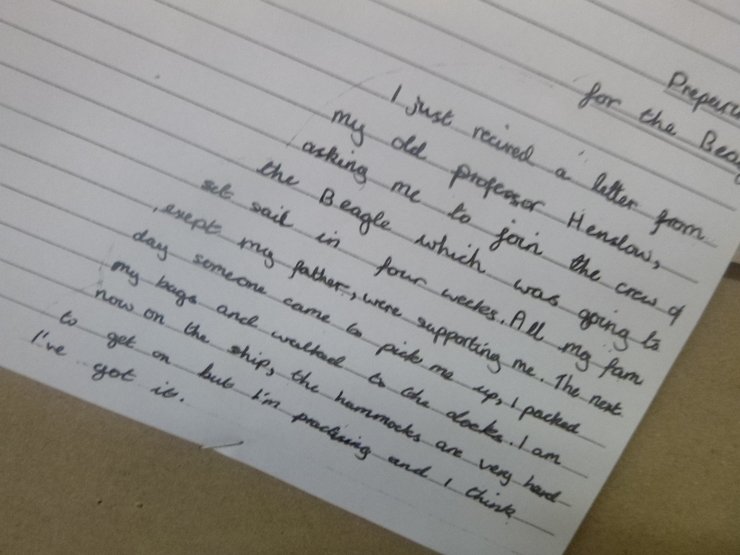 for the
I just recived a letter from
my old professor Henslow,
asking me to join the crew of
the Beagle which was going to
set sail in four weeks. All my fam
, exept my father, were supporting me. The next
day someone came to pick me up, I packed
my bags and walked to the docks. I am
now on the ship, the hammocks are very hard
to get on but I'm practising and I think
I've got it.